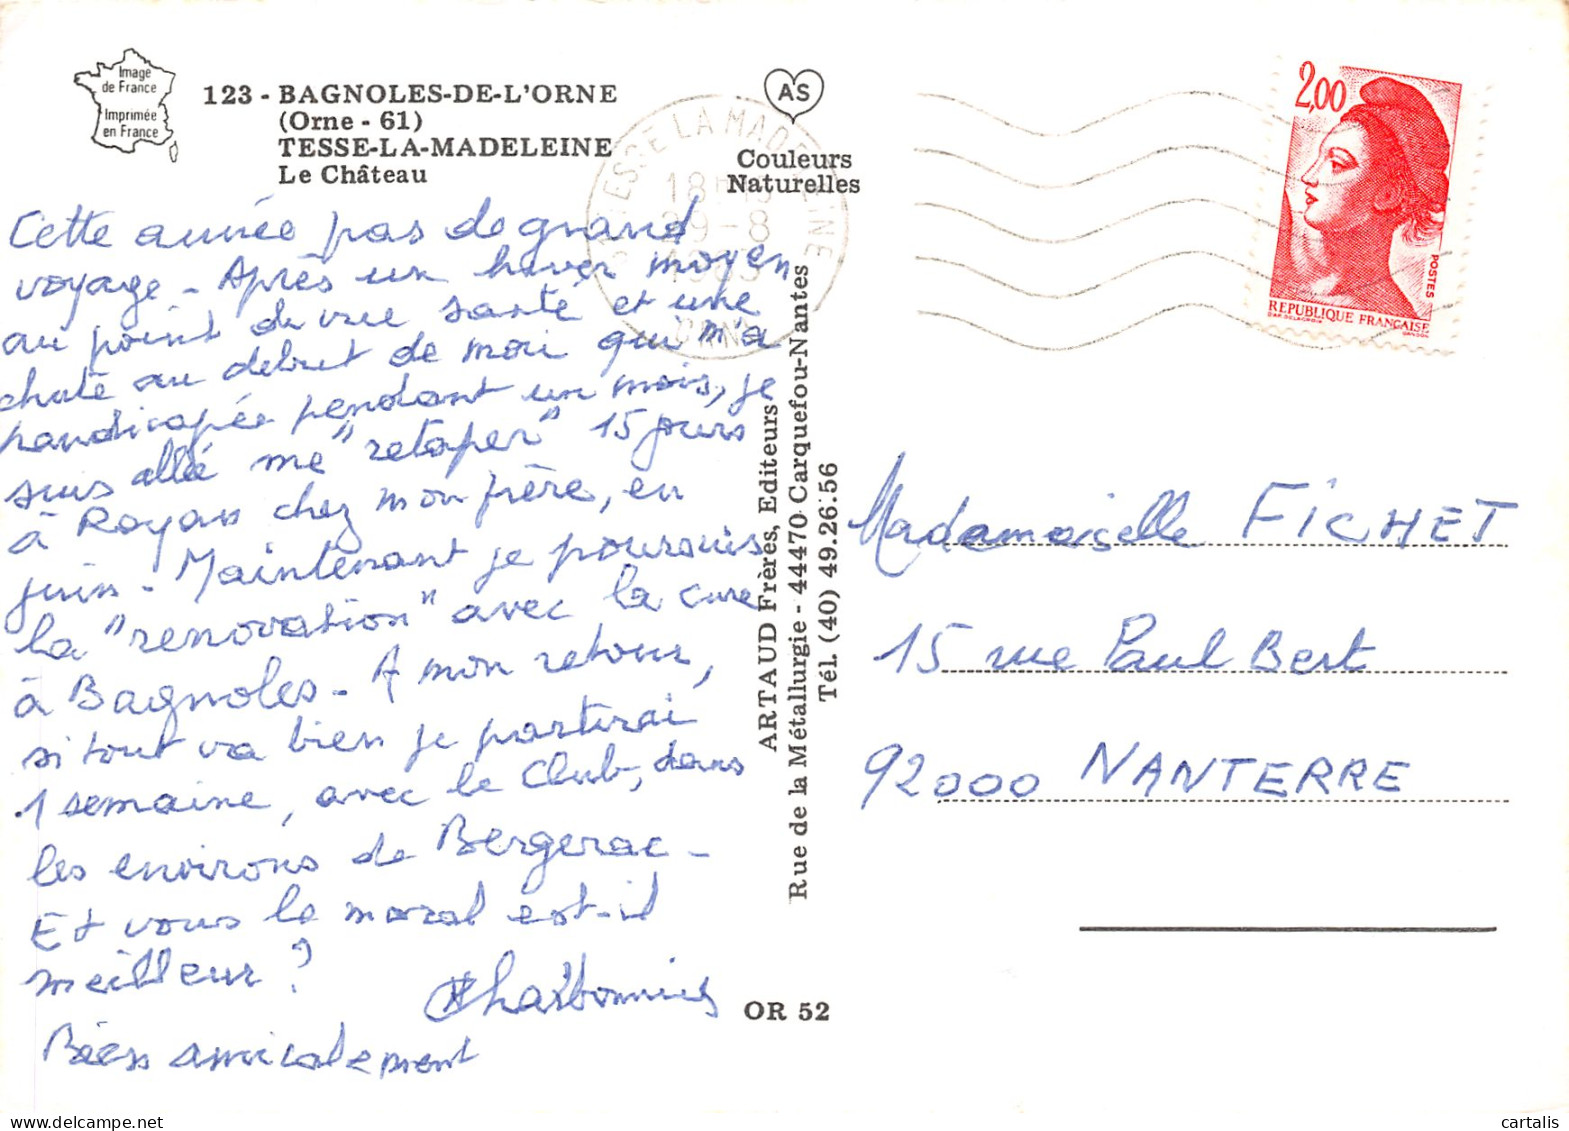 Image
de France
Imprimée
en France
123 - BAGNOLES-DE-L'ORNE
(Orne - 61)
TESSE-LA-MADELEINE
Le Château
AS
Couleurs
Naturelles
TESSE LA MADELEINE
18H
29-8
ORNE
2,00
POSTES
REPUBLIQUE FRANÇAISE
Cette année pas de grand
voyage - Après un hiver moyen
au point de vue santé et une
chute au début de mai qui m'a
handicapée pendant un mois, je
suis allée me "retaper" 15 jours
à Royan chez mon frère, en
juin - Maintenant je poursuis
la "renovation" avec la cure
à Bagnoles - A mon retour,
si tout va bien je partirai
1 semaine, avec le Club, dans
les environs de Bergerac -
Et vous le moral est-il
meilleur ?
Bien amicalement
ARTAUD Frères, Editeurs
Rue de la Métallurgie - 44470 Carquefou-Nantes
Tél. (40) 49.26.56
OR 52
Mademoiselle FICHET
15 rue Paul Bert
92000 NANTERRE
cartalis
www.delcampe.net